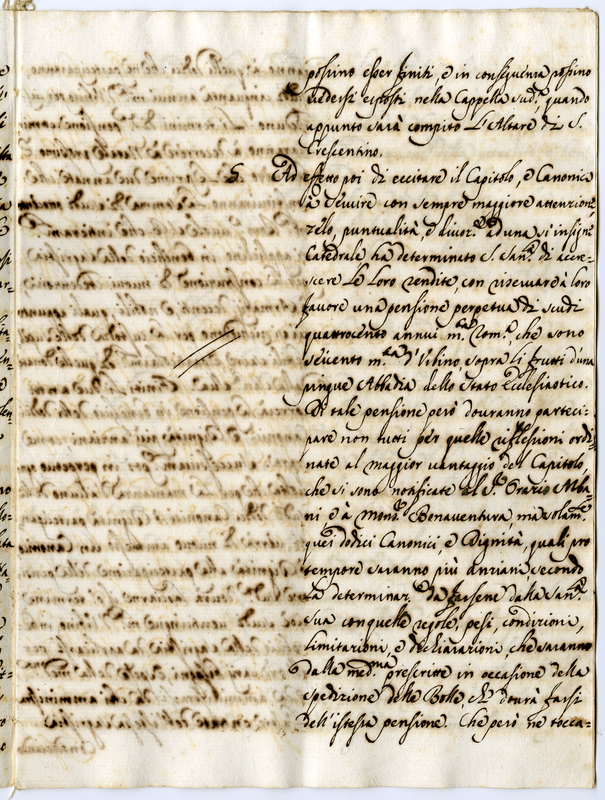 possino esser finiti, e in conseguenza possino
vedersi esposti nella Cappella sud.ª quando
appunto sarà compito l'Altare di S.
Crescentino.
5. Ad effetto poi di eccitare il Capitolo, e Canonici
à servire con sempre maggiore attenzione,
zelo, puntualità, e divoz.ne ad una si insigne
Catedrale hà determinato S. San.tà di accre-
scere le loro rendite, con riservare à loro
favore una pensione perpetua di scudi
quattrocento annui m.ta Rom.ª, che sono
seicento m.ta d'Urbino, sopra li frutti d'una
pingue Abbadia dello Stato Ecclesiastico.
Di tale pensione però dovranno parteci-
pare non tutti per quelle riflessioni ordi-
nate al maggior vantaggio del Capitolo,
che si sono notificate al S.r Orazio Alba-
ni, e à Mons.r Bonaventura, ma solam.te
quei dodici Canonici, e Dignità, quali pro
tempore saranno più anziani, secondo
la determinaz.ne da farsene dalla San.tà
Sua con quelle regole, pesi, condizioni,
limitazioni, e dichiarazioni, che saranno
dalla med.ma prescritte in occasione della
spedizione delle Bolle, che dovrà farsi
dell'istessa pensione. Che però ne tocca-